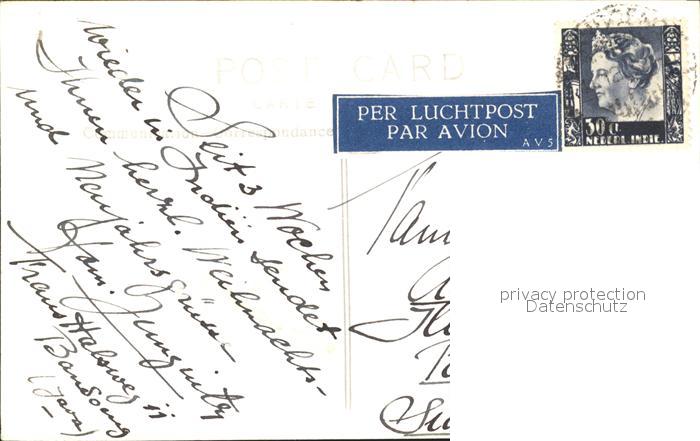 POST CARD
CARTE
Communication Correspondance
Seit 3 Wochen
wieder in Indien sendet
Ihnen herzl. Weihnachts-
und Neujahrsgrüsse
Fam.
Frans Halsweg 11
Bandoeng
(Java)
PER LUCHTPOST
PAR AVION
AV5
30 ct
NEDERL. INDIE
Fam
privacy protection
Datenschutz